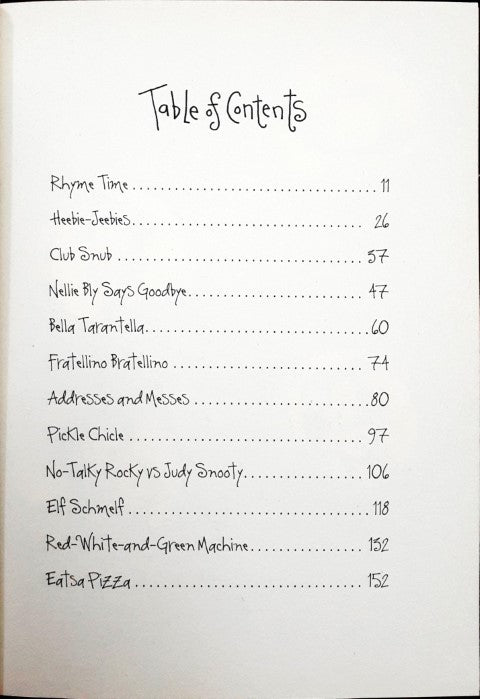 Table of Contents
Rhyme Time ................................ 11
Heebie-Jeebies .............................. 26
Club Snub ................................ 37
Nellie Bly Says Goodbye ....................... 47
Bella Tarantella ............................ 60
Fratellino Bratellino ......................... 74
Addresses and Messes ....................... 80
Pickle Chicle ............................... 97
No-Talky Rocky vs Judy Snooty ............... 106
Elf Schmelf ............................... 118
Red-White-and-Green Machine .............. 132
Eatsa Pizza .............................. 152